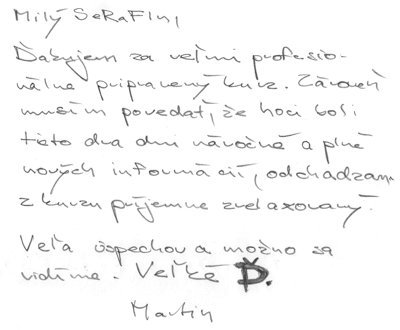 Milý SeRaFIn,
Ďakujem za veľmi profesio-
nálne pripravený kurz. Zároveň
musím povedať, že hoci boli
tieto dva dni náročné a plné
nových informácií, odchádzam
z kurzu príjemne zrelaxovaný.
Veľa úspechov a možno sa
vidíme. Veľké Ď.
Martin